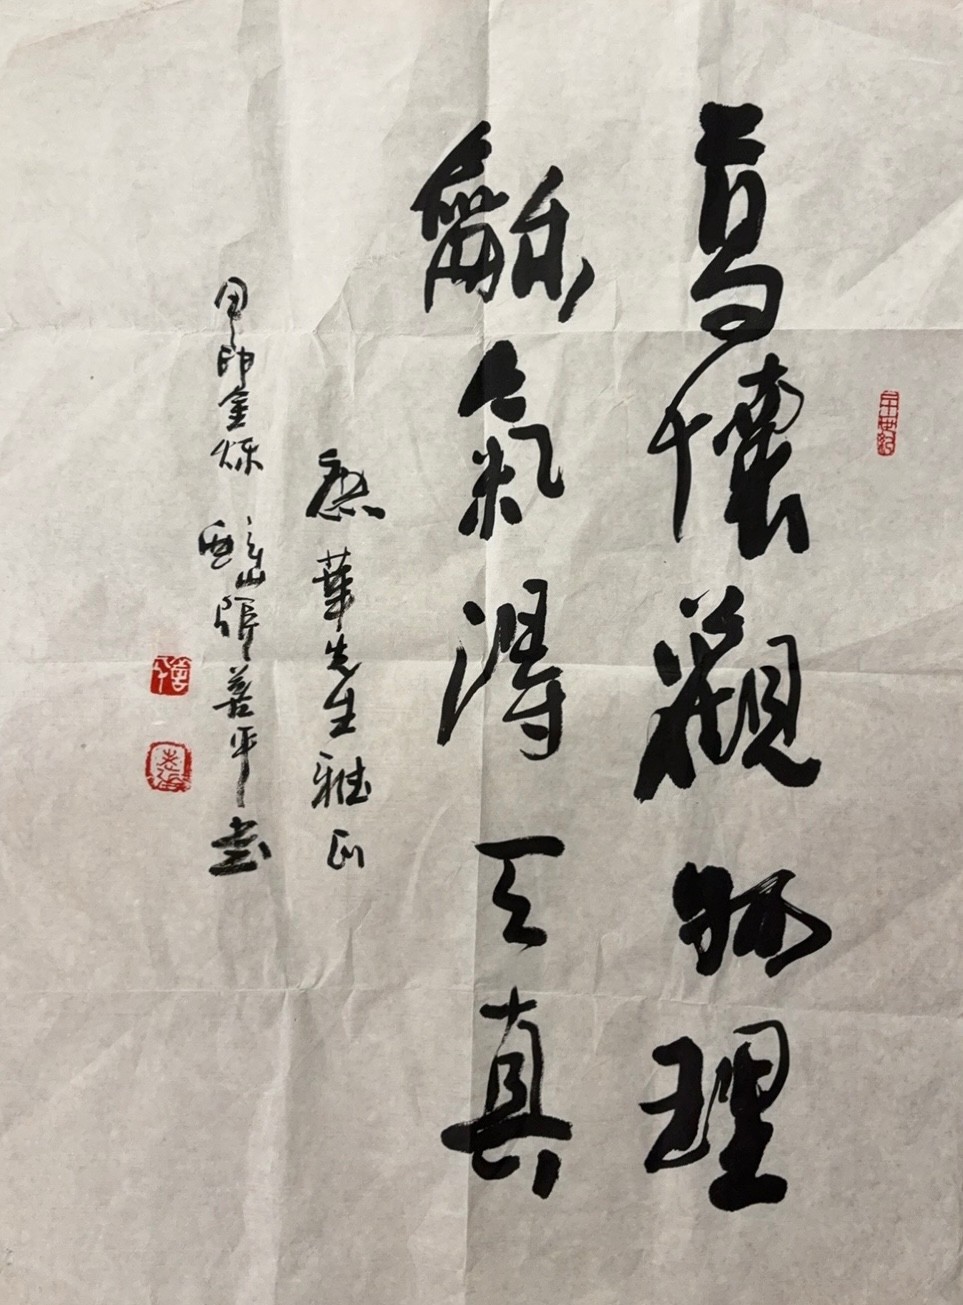 高懷觀物理
龢氣得天真
華先生雅正
甲申金秋 山張善平書